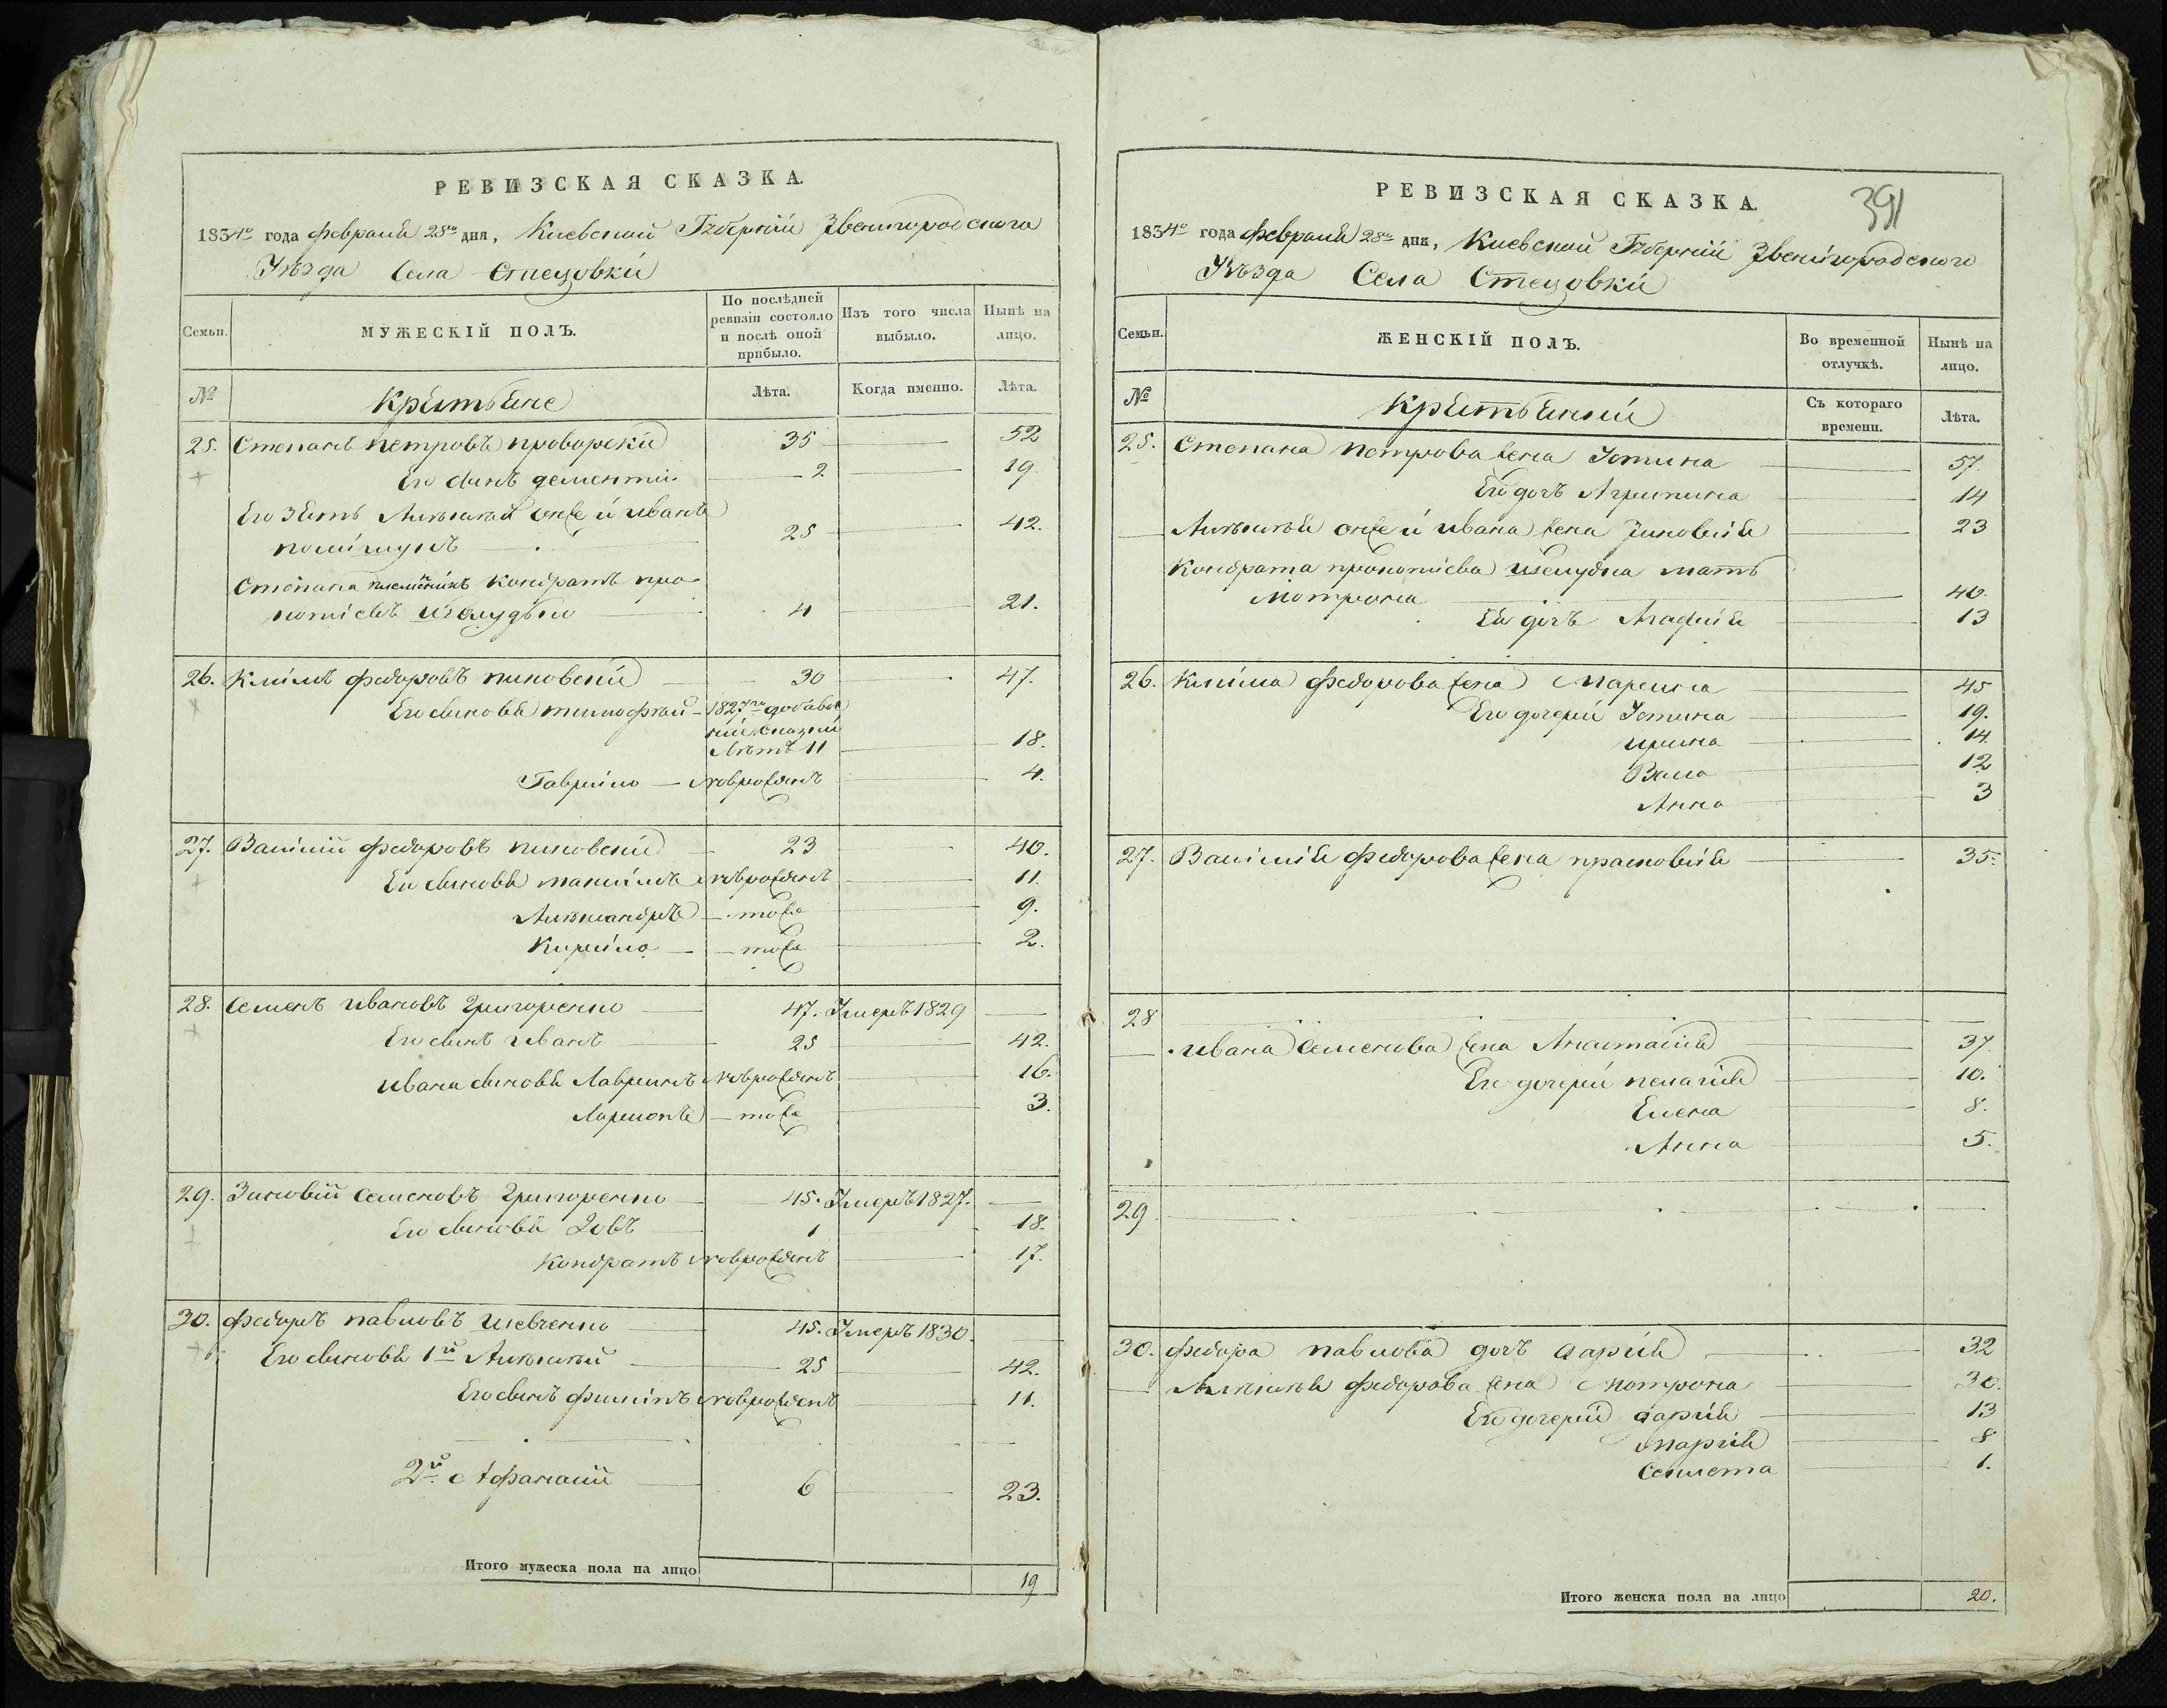 РЕВИЗСКАЯ СКАЗКА.
1834го года февраля 28го дня, Киевской Губерніи Звенигородскаго
Уѣзда Села Стецовки
Семьи.
МУЖЕСКІЙ ПОЛЪ.
По послѣдней ревизіи состояло и послѣ оной прибыло.
Изъ того числа выбыло.
Нынѣ на лицо.
№
Крестьяне
Лѣта.
Когда именно.
Лѣта.
25. Степанъ Петровъ 35 52
Его сынъ Дементій 2 19.
Его зять Алексѣй онже и Иванъ
25 42.
Степана племянникъ Кондратъ Про-
копіевъ Шелудько 4 21.
26. Климъ Федоровъ 30 47.
Его сыновья Тимофѣй 1827го добавоч
ной сказки
Лѣтъ 11 18.
Гаврило новрожденъ 4.
27. Василій Федоровъ 23 40.
Его сыновья Максимъ новрожденъ 11.
Александръ тоже 9.
Кирило тоже 2.
28. Семенъ Ивановъ Григоренко 47. Умеръ 1829
Его сынъ Иванъ 25 42.
Ивана сыновья Лавринъ новрожденъ 16.
Ларионъ тоже 3.
29. Зиновій Семеновъ Григоренко 45. Умеръ 1827.
Его сыновья Іовъ 1 18.
Кондратъ новрожденъ 17.
30. Федоръ Павловъ Шевченко 45. Умеръ 1830.
Его сыновья 1й Алексѣй 25 42.
Его сынъ Филипъ новрожденъ 11.
2й Афанасій 6 23.
Итого мужеска пола на лицо 19
391
РЕВИЗСКАЯ СКАЗКА.
1834го года февраля 28го дня, Киевской Губерніи Звенигородскаго
Уѣзда Села Стецовки
Семьи.
ЖЕНСКІЙ ПОЛЪ.
Во временной отлучкѣ.
Нынѣ на лицо.
№
Крестьянки
Съ котораго времени.
Лѣта.
25. Степана Петрова жена Устина 57.
Его дочь Агрипина 14
Алексѣя онже и Ивана жена Зиновія 23
Кондрата Прокопіева Шелудька мать
Мотрона 40.
Ея дочь Агафия 13
26. Клима Федорова жена Марина 45
Его дочери Устина 19.
Ирина 14.
Васса 12
Анна 3
27. Василія Федорова жена Прасковія 35.
28
Ивана Семенова жена Анастасія 37.
Его дочери Пелагія 10.
Елена 8.
Анна 5.
29
30. Федора Павлова дочь Дарія 32
Алексѣя Федорова жена Мотрона 30.
Его дочери Дарія 13
Марія 8
1.
Итого женска пола на лицо 20.